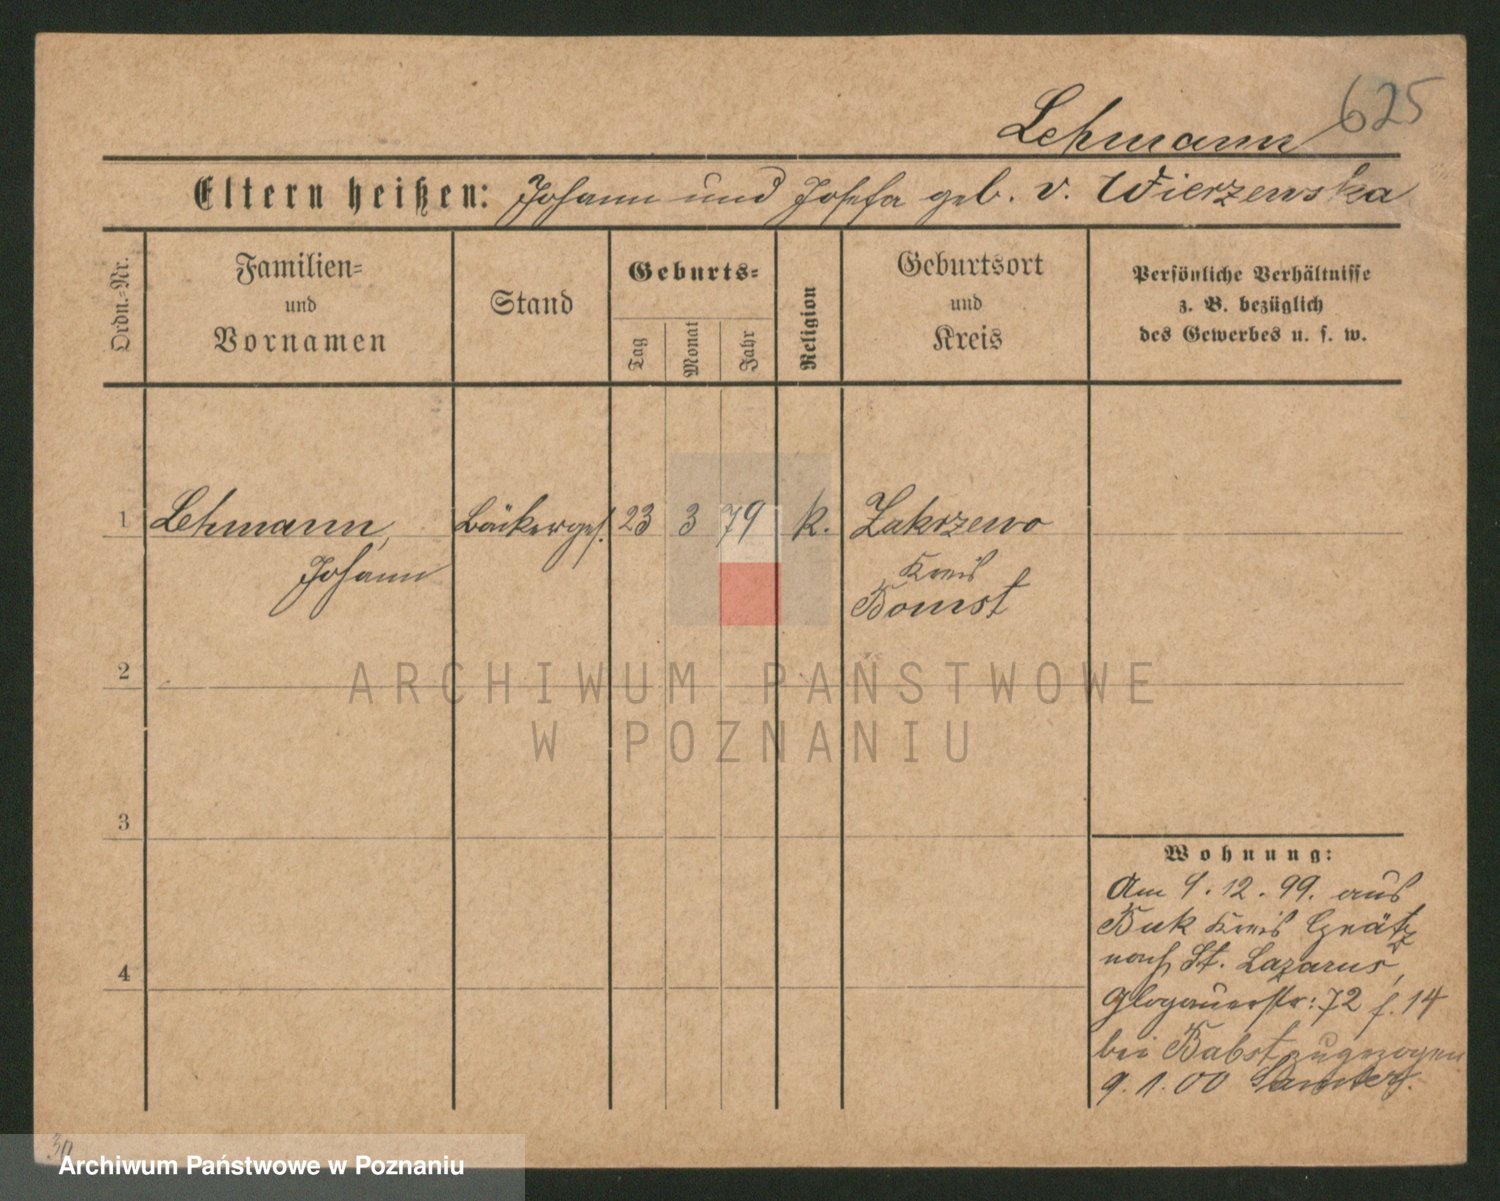 625
Lehmann
Eltern heißen: Johann und Josefa geb. v. Wierzewska
Ordn.-Nr.
Familien-
und
Vornamen
Stand
Geburts-
Tag
Monat
Jahr
Religion
Geburtsort
und
Kreis
Persönliche Verhältnisse
z. B. bezüglich
des Gewerbes u. s. w.
1 Lehmann, Bäckerges. 23 3 79 k. Zakrzewo
Johann
Kreis
Bomst
2
ARCHIWUM PAŃSTWOWE
W POZNANIU
3
Wohnung:
Am 9.12.99. aus
Buk Kreis Grätz
nach St. Lazarus,
4
Glogauerstr: 72 f. 14
bei Babst zugezogen
9.1.00 Samter.
30
Archiwum Państwowe w Poznaniu